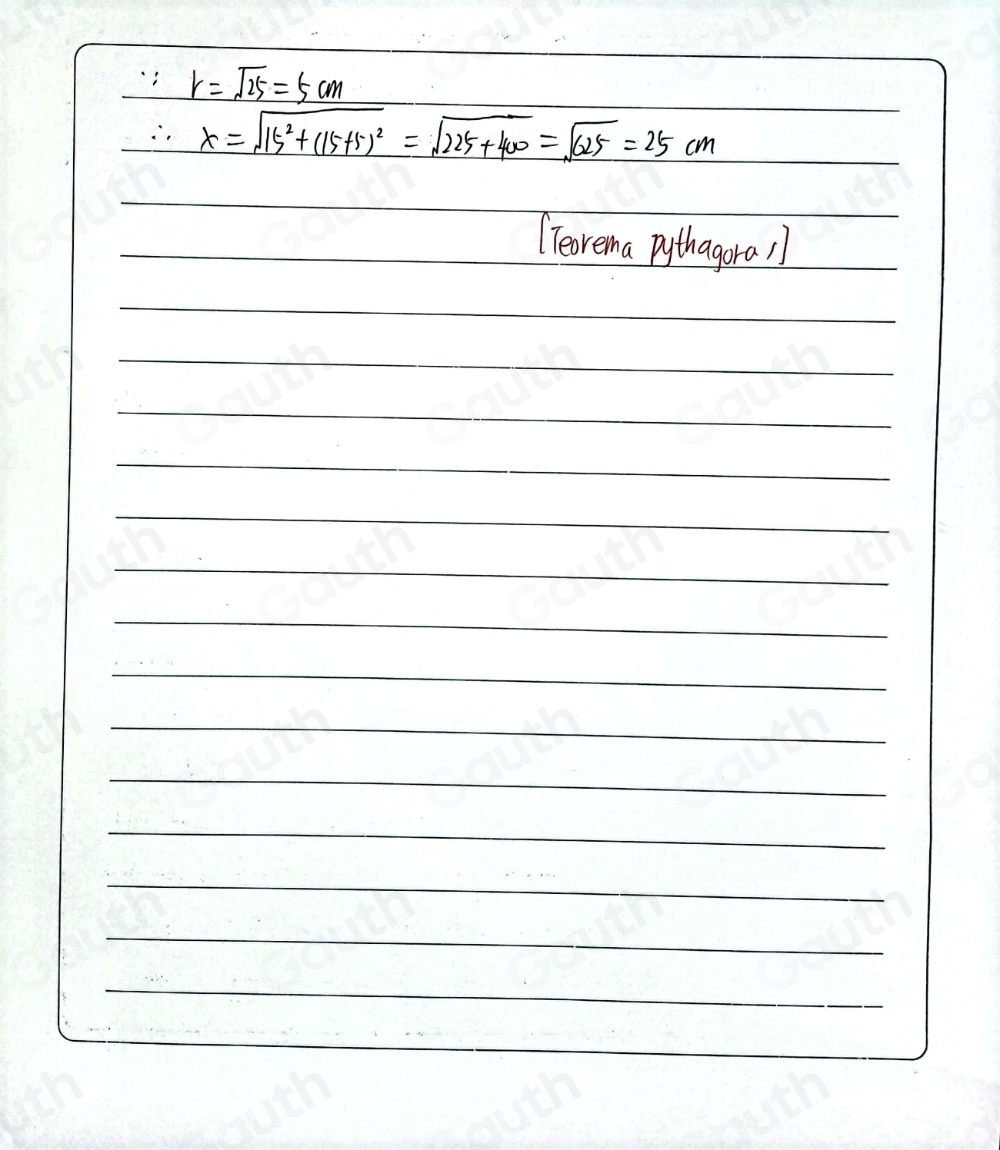 ∵ r = √25 = 5 cm
∴ x = √15² + (15+5)² = √225 + 400 = √625 = 25 cm
[Teorema pythagoras]
Gauth